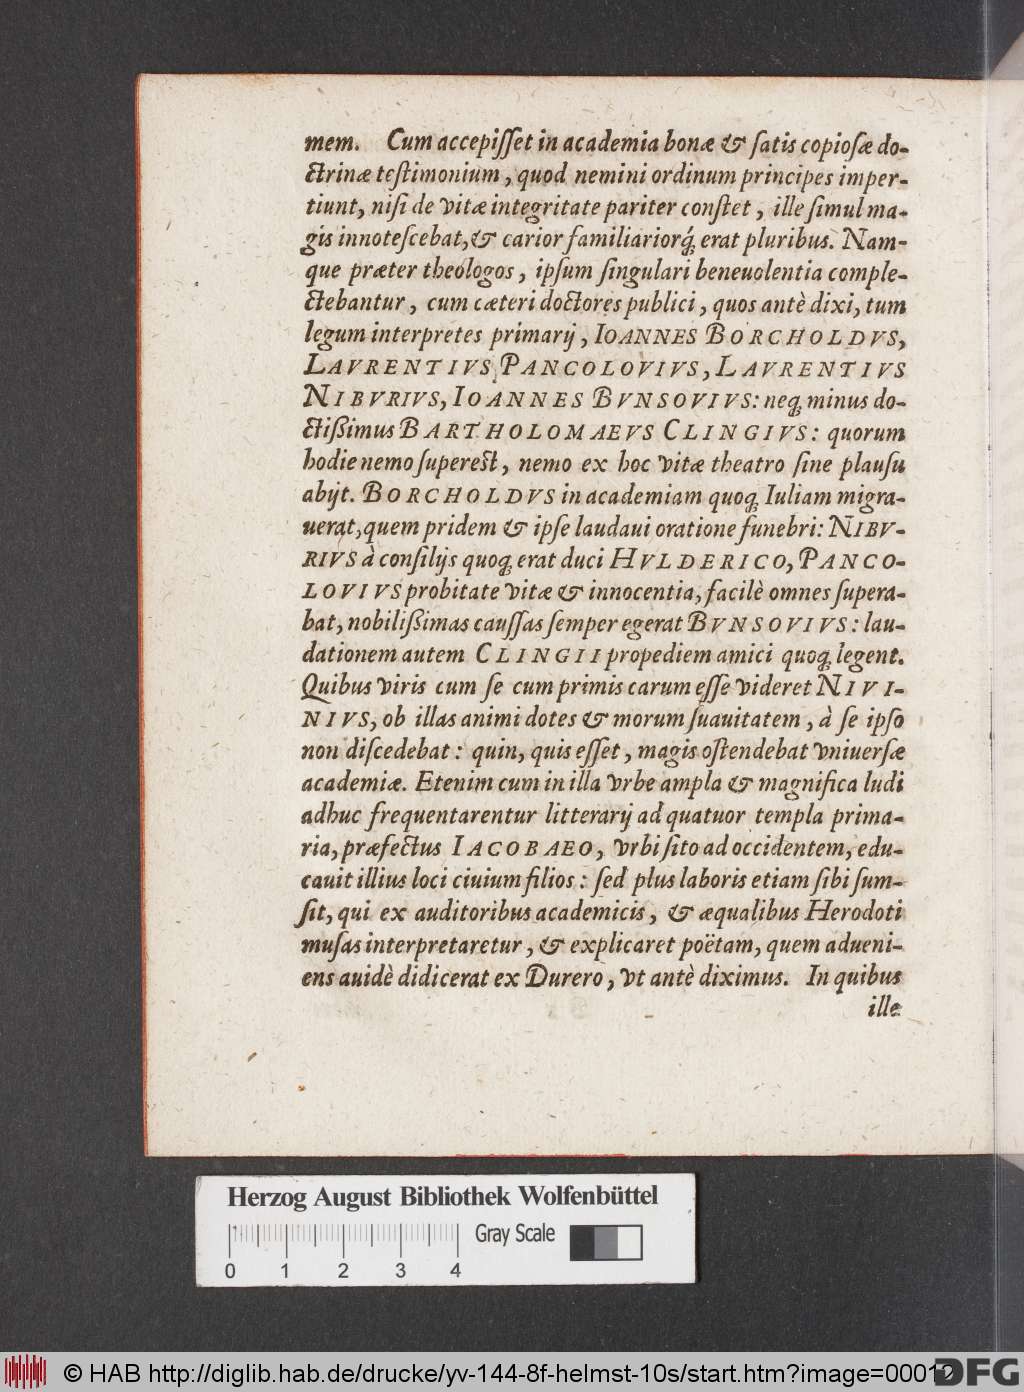 mem. Cum accepiſſet in academia bonæ & ſatis copioſæ do-
ctrinæ teſtimonium, quod nemini ordinum principes imper-
tiunt, niſi de vitæ integritate pariter conſtet, ille ſimul ma-
gis innoteſcebat, & carior familiariorq́; erat pluribus. Nam-
que præter theologos, ipſum ſingulari beneuolentia comple-
ctebantur, cum cæteri doctores publici, quos antè dixi, tum
legum interpretes primarij, IOANNES BORCHOLDVS,
LAVRENTIVS PANCOLOVIVS, LAVRENTIVS
NIBVRIVS, IOANNES BVNSOVIVS: neq; minus do-
ctißimus BARTHOLOMAEVS CLINGIVS: quorum
hodie nemo ſupereſt, nemo ex hoc vitæ theatro ſine plauſu
abijt. BORCHOLDVS in academiam quoq; Iuliam migra-
uerat, quem pridem & ipſe laudaui oratione funebri: NIBV-
RIVS à conſilijs quoq; erat duci HVLDERICO, PANCO-
LOVIVS probitate vitæ & innocentia, facilè omnes ſupera-
bat, nobilißimas cauſſas ſemper egerat BVNSOVIVS: lau-
dationem autem CLINGII propediem amici quoq; legent.
Quibus viris cum ſe cum primis carum eſſe videret NIVI-
NIVS, ob illas animi dotes & morum ſuauitatem, à ſe ipſo
non diſcedebat: quin, quis eſſet, magis oſtendebat vniuerſæ
academiæ. Etenim cum in illa vrbe ampla & magnifica ludi
adhuc frequentarentur litterarij ad quatuor templa prima-
ria, præfectus IACOBAEO, vrbi ſito ad occidentem, edu-
cauit illius loci ciuium filios: ſed plus laboris etiam ſibi ſum-
ſit, qui ex auditoribus academicis, & æqualibus Herodoti
muſas interpretaretur, & explicaret poëtam, quem adueni-
ens auidè didicerat ex Durero, vt antè diximus. In quibus
ille
Herzog August Bibliothek Wolfenbüttel
Gray Scale
0 1 2 3 4
© HAB http://diglib.hab.de/drucke/yv-144-8f-helmst-10s/start.htm?image=00012
DFG